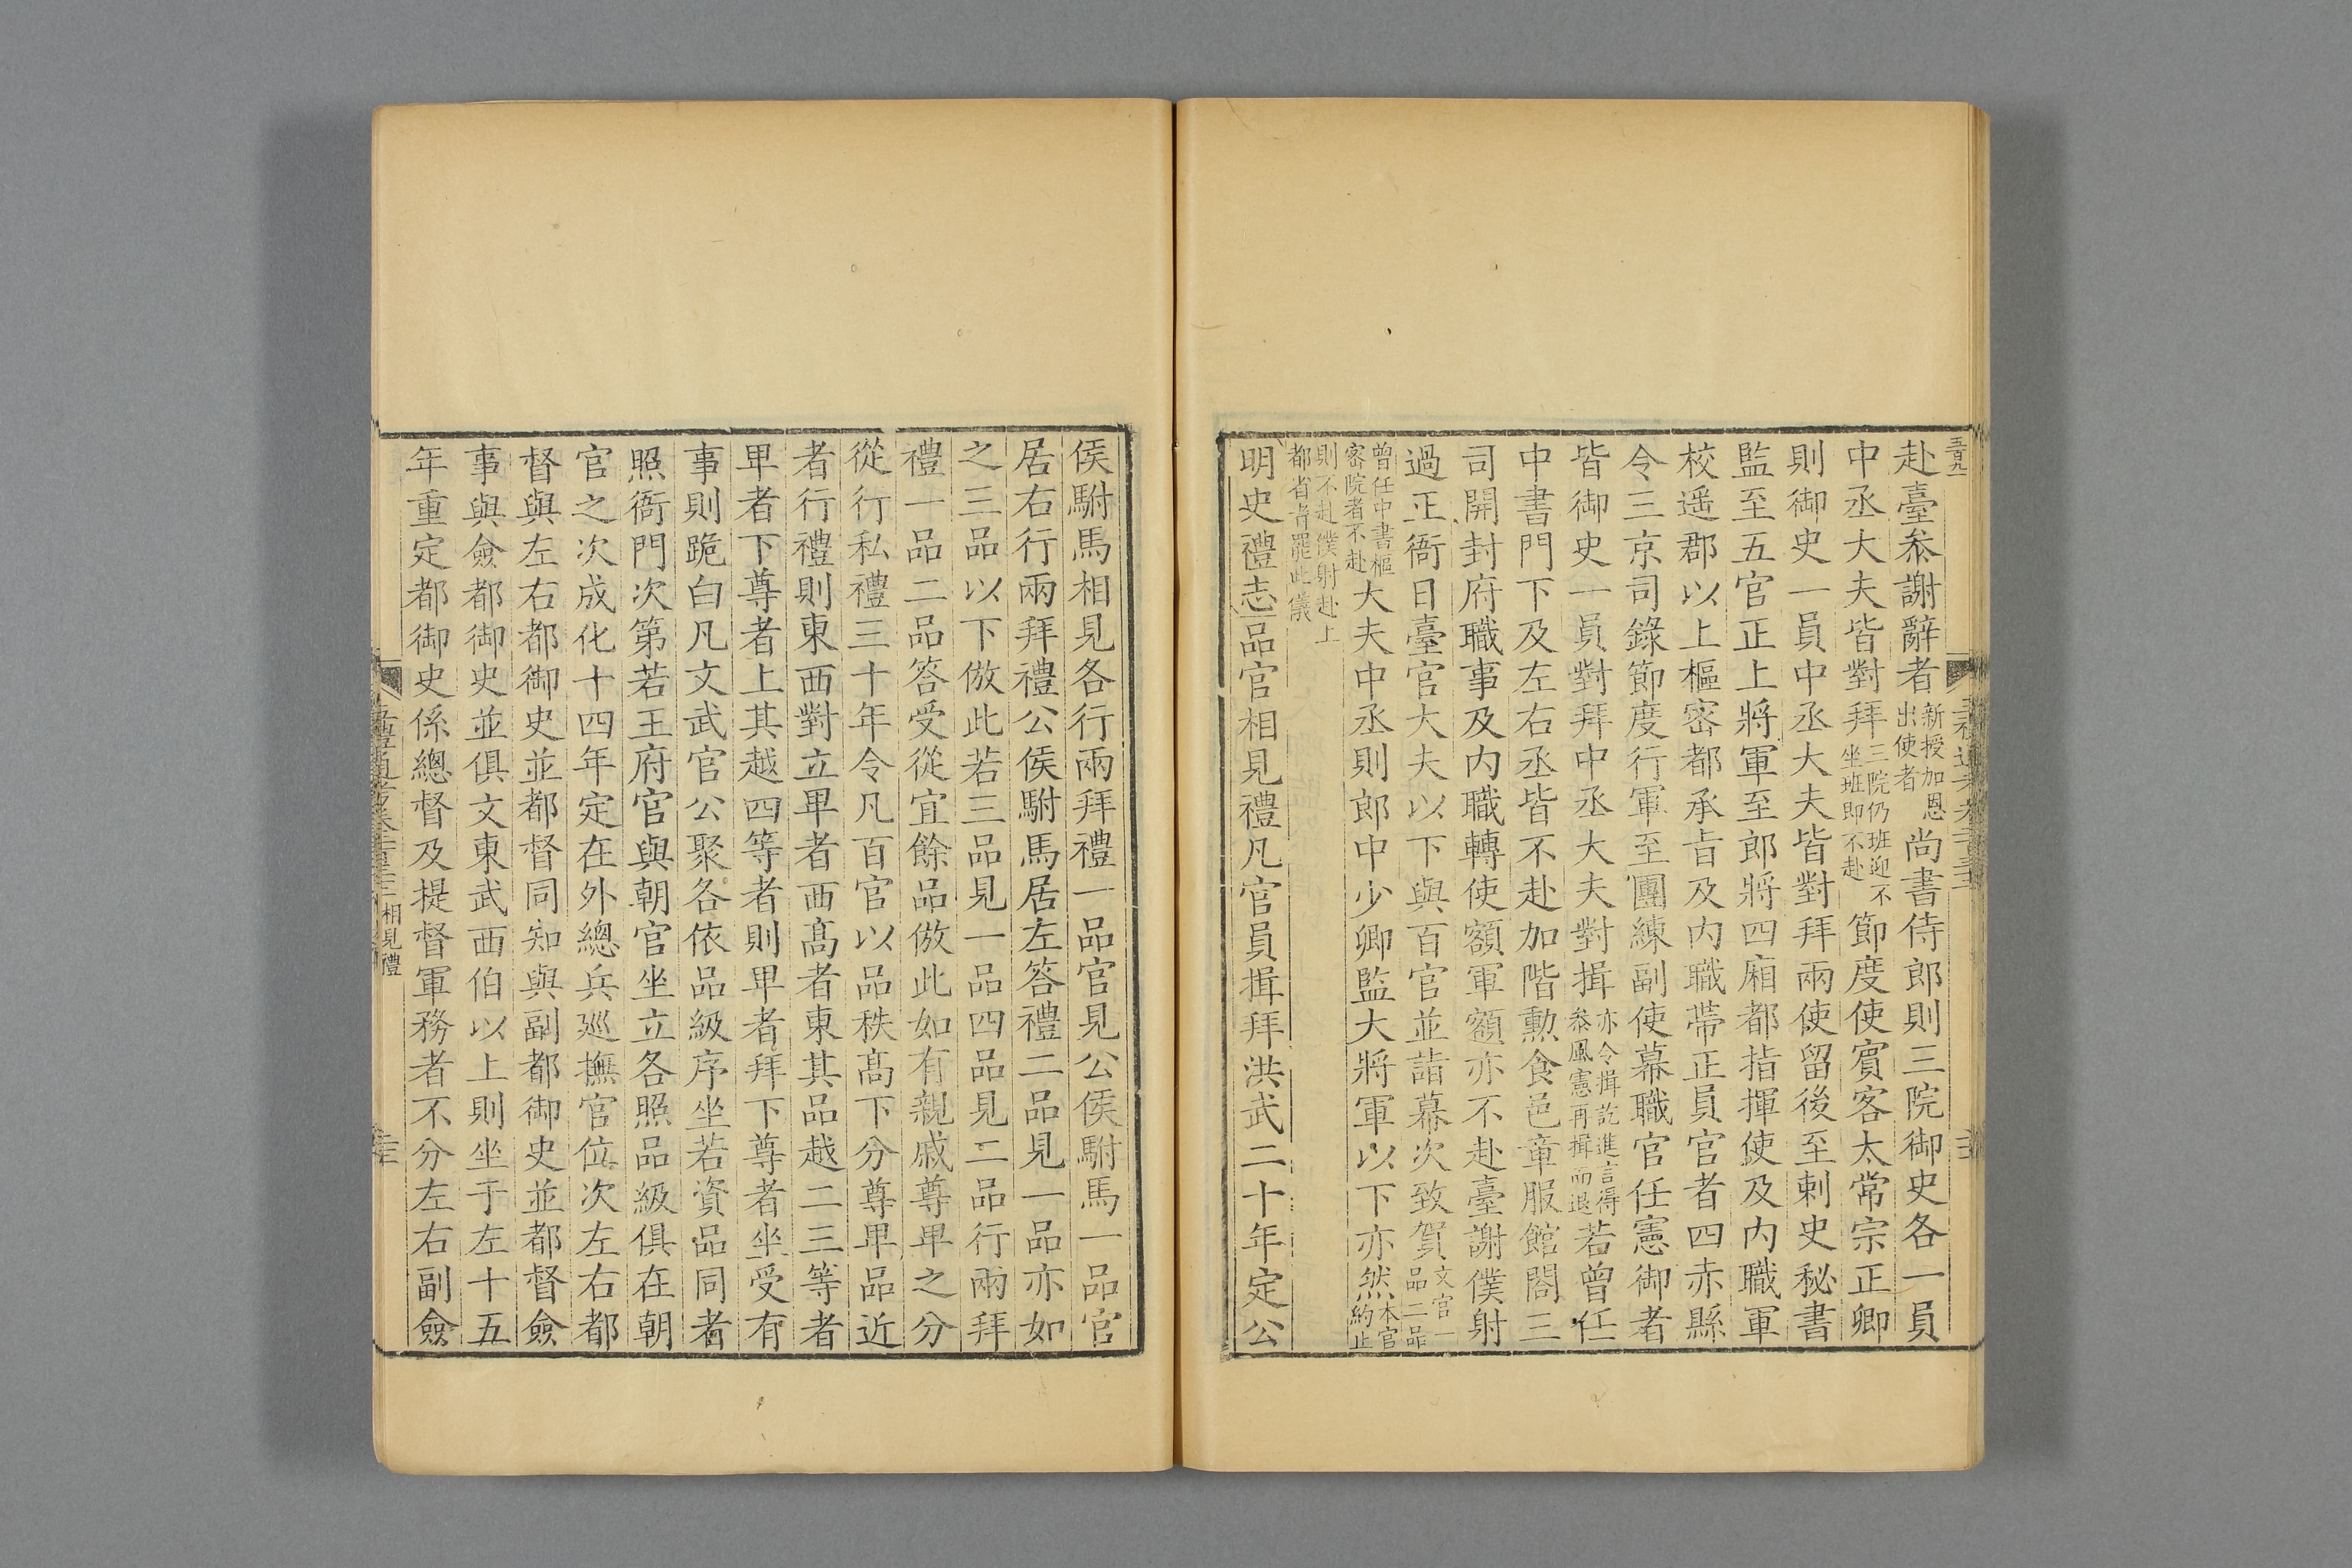 赴臺叅謝辭者新授加恩出使者尚書侍郎則三院御史各一員
中丞大夫皆對拜三院仍班迎不坐班即不赴節度使賓客太常宗正卿
則御史一員中丞大夫皆對拜兩使留後至刺史秘書
監至五官正上將軍至郎將四廂都指揮使及內職軍
校遥郡以上樞密都承旨及內職帶正員官者四赤縣
令三京司錄節度行軍至團練副使幕職官任憲御者
皆御史一員對拜中丞大夫對揖亦令揖訖進言得叅風憲再揖而退若曾任
中書門下及左右丞皆不赴加階勳食邑章服館閣三
司開封府職事及內職轉使額軍額亦不赴臺謝僕射
過正衙日臺官大夫以下與百官並詣幕次致賀文官一品二品
曾任中書樞密院者不赴大夫中丞則郎中少卿監大將軍以下亦然本官約止
則不赴僕射赴上都省者罷此儀
明史禮志品官相見禮凡官員揖拜洪武二十年定公
侯駙馬相見各行兩拜禮一品官見公侯駙馬一品官
居右行兩拜禮公侯駙馬居左答禮二品見一品亦如
之三品以下倣此若三品見一品四品見二品行兩拜
禮一品二品答受從宜餘品倣此如有親戚尊卑之分
從行私禮三十年令凡百官以品秩髙下分尊卑品近
者行禮則東西對立卑者西髙者東其品越二三等者
卑者下尊者上其越四等者則卑者拜下尊者坐受有
事則跪白凡文武官公聚各依品級序坐若資品同者
照衙門次第若王府官與朝官坐立各照品級俱在朝
官之次成化十四年定在外總兵廵撫官位次左右都
督與左右都御史並都督同知與副都御史並都督僉
事與僉都御史並俱文東武西伯以上則坐于左十五
年重定都御史係總督及提督軍務者不分左右副僉
相見禮